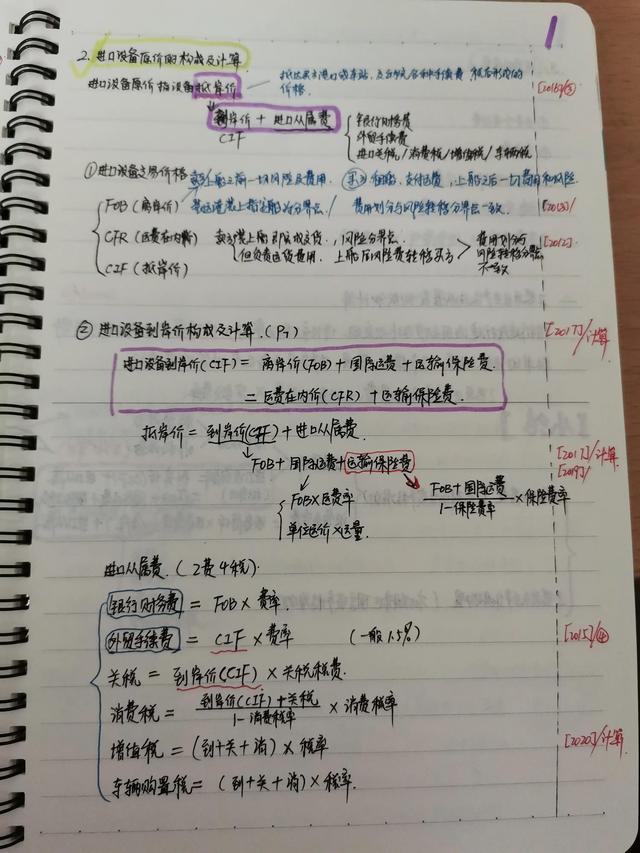 1
2. 进口设备原价的构成及计算
进口设备原价指设备抵岸价 —— 抵达买方港口或车站,且交纳各种手续费、税后形成的价格.
[2018]/
到岸价 + 进口从属费
CIF
银行财务费
外贸手续费
进口关税/消费税/增值税/车辆税
① 进口设备交易价格
卖方:上船之前一切风险及费用. 买方:租船、支付运费,上船之后一切费用和风险.
FOB(离岸价) 装运港装上指定船为分界点./ 费用划分与风险转移分界点一致. [2013]/
CFR(运费在内价) 卖方装上船即完成交货,风险分界点. 费用划分与风险转移分界点不一致 [2012]
但负责运货费用. 上船后风险费转移买方
CIF(抵岸价)
② 进口设备到岸价构成及计算.(P1) [2017]/计算
进口设备到岸价(CIF) = 离岸价(FOB) + 国际运费 + 运输保险费.
= 运费在内价(CFR) + 运输保险费.
抵岸价 = 到岸价(CIF) + 进口从属费. [2017]/计算
[2019]/
FOB + 国际运费 + 运输保险费
FOB×运费率
单位运价×运量
FOB+国际运费
1-保险费率
×保险费率
进口从属费.(2费4税).
银行财务费 = FOB×费率.
外贸手续费 = CIF×费率 (一般1.5%) [2015]/
关税 = 到岸价(CIF)×关税税费.
消费税 = 到岸价(CIF)+关税
1-消费税率
×消费税率
增值税 = (到+关+消)×税率 [2020]/计算
车辆购置税 = (到+关+消)×税率.